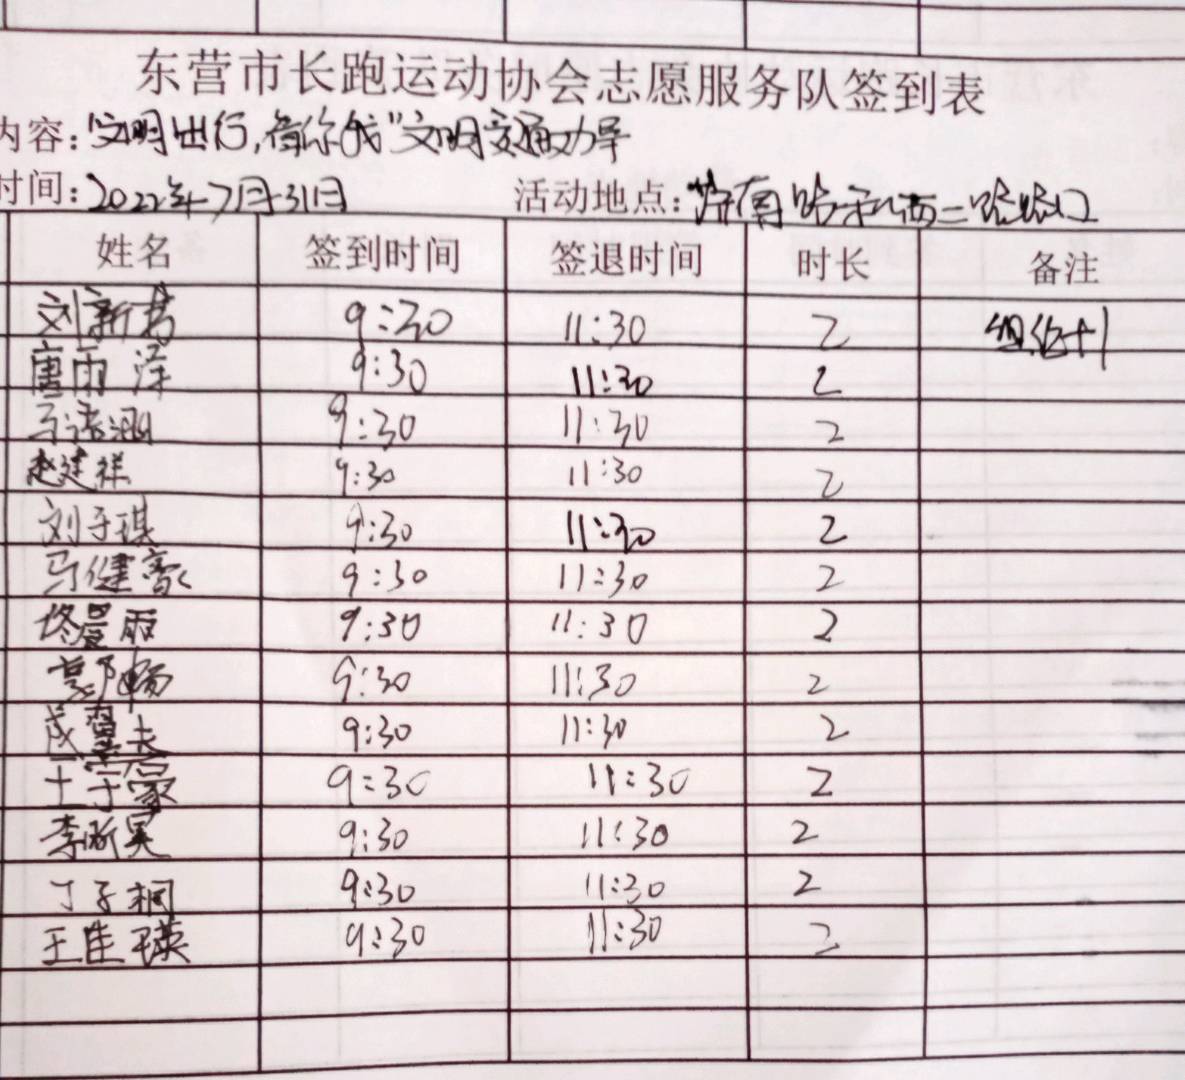 东营市长跑运动协会志愿服务队签到表
内容:"文明出行,有你我"文明交通劝导
时间:2022年7月31日 活动地点:路和西二路路口
姓名 签到时间 签退时间 时长 备注
刘新 9:30 11:30 2 组织+1
唐雨泽 9:30 11:30 2
马 9:30 11:30 2
赵建祥 9:30 11:30 2
刘子琪 9:30 11:30 2
马健豪 9:30 11:30 2
佟曼雨 9:30 11:30 2
郭畅 9:30 11:30 2
9:30 11:30 2
王子豪 9:30 11:30 2
李昕昊 9:30 11:30 2
丁子桐 9:30 11:30 2
王佳瑛 9:30 11:30 2